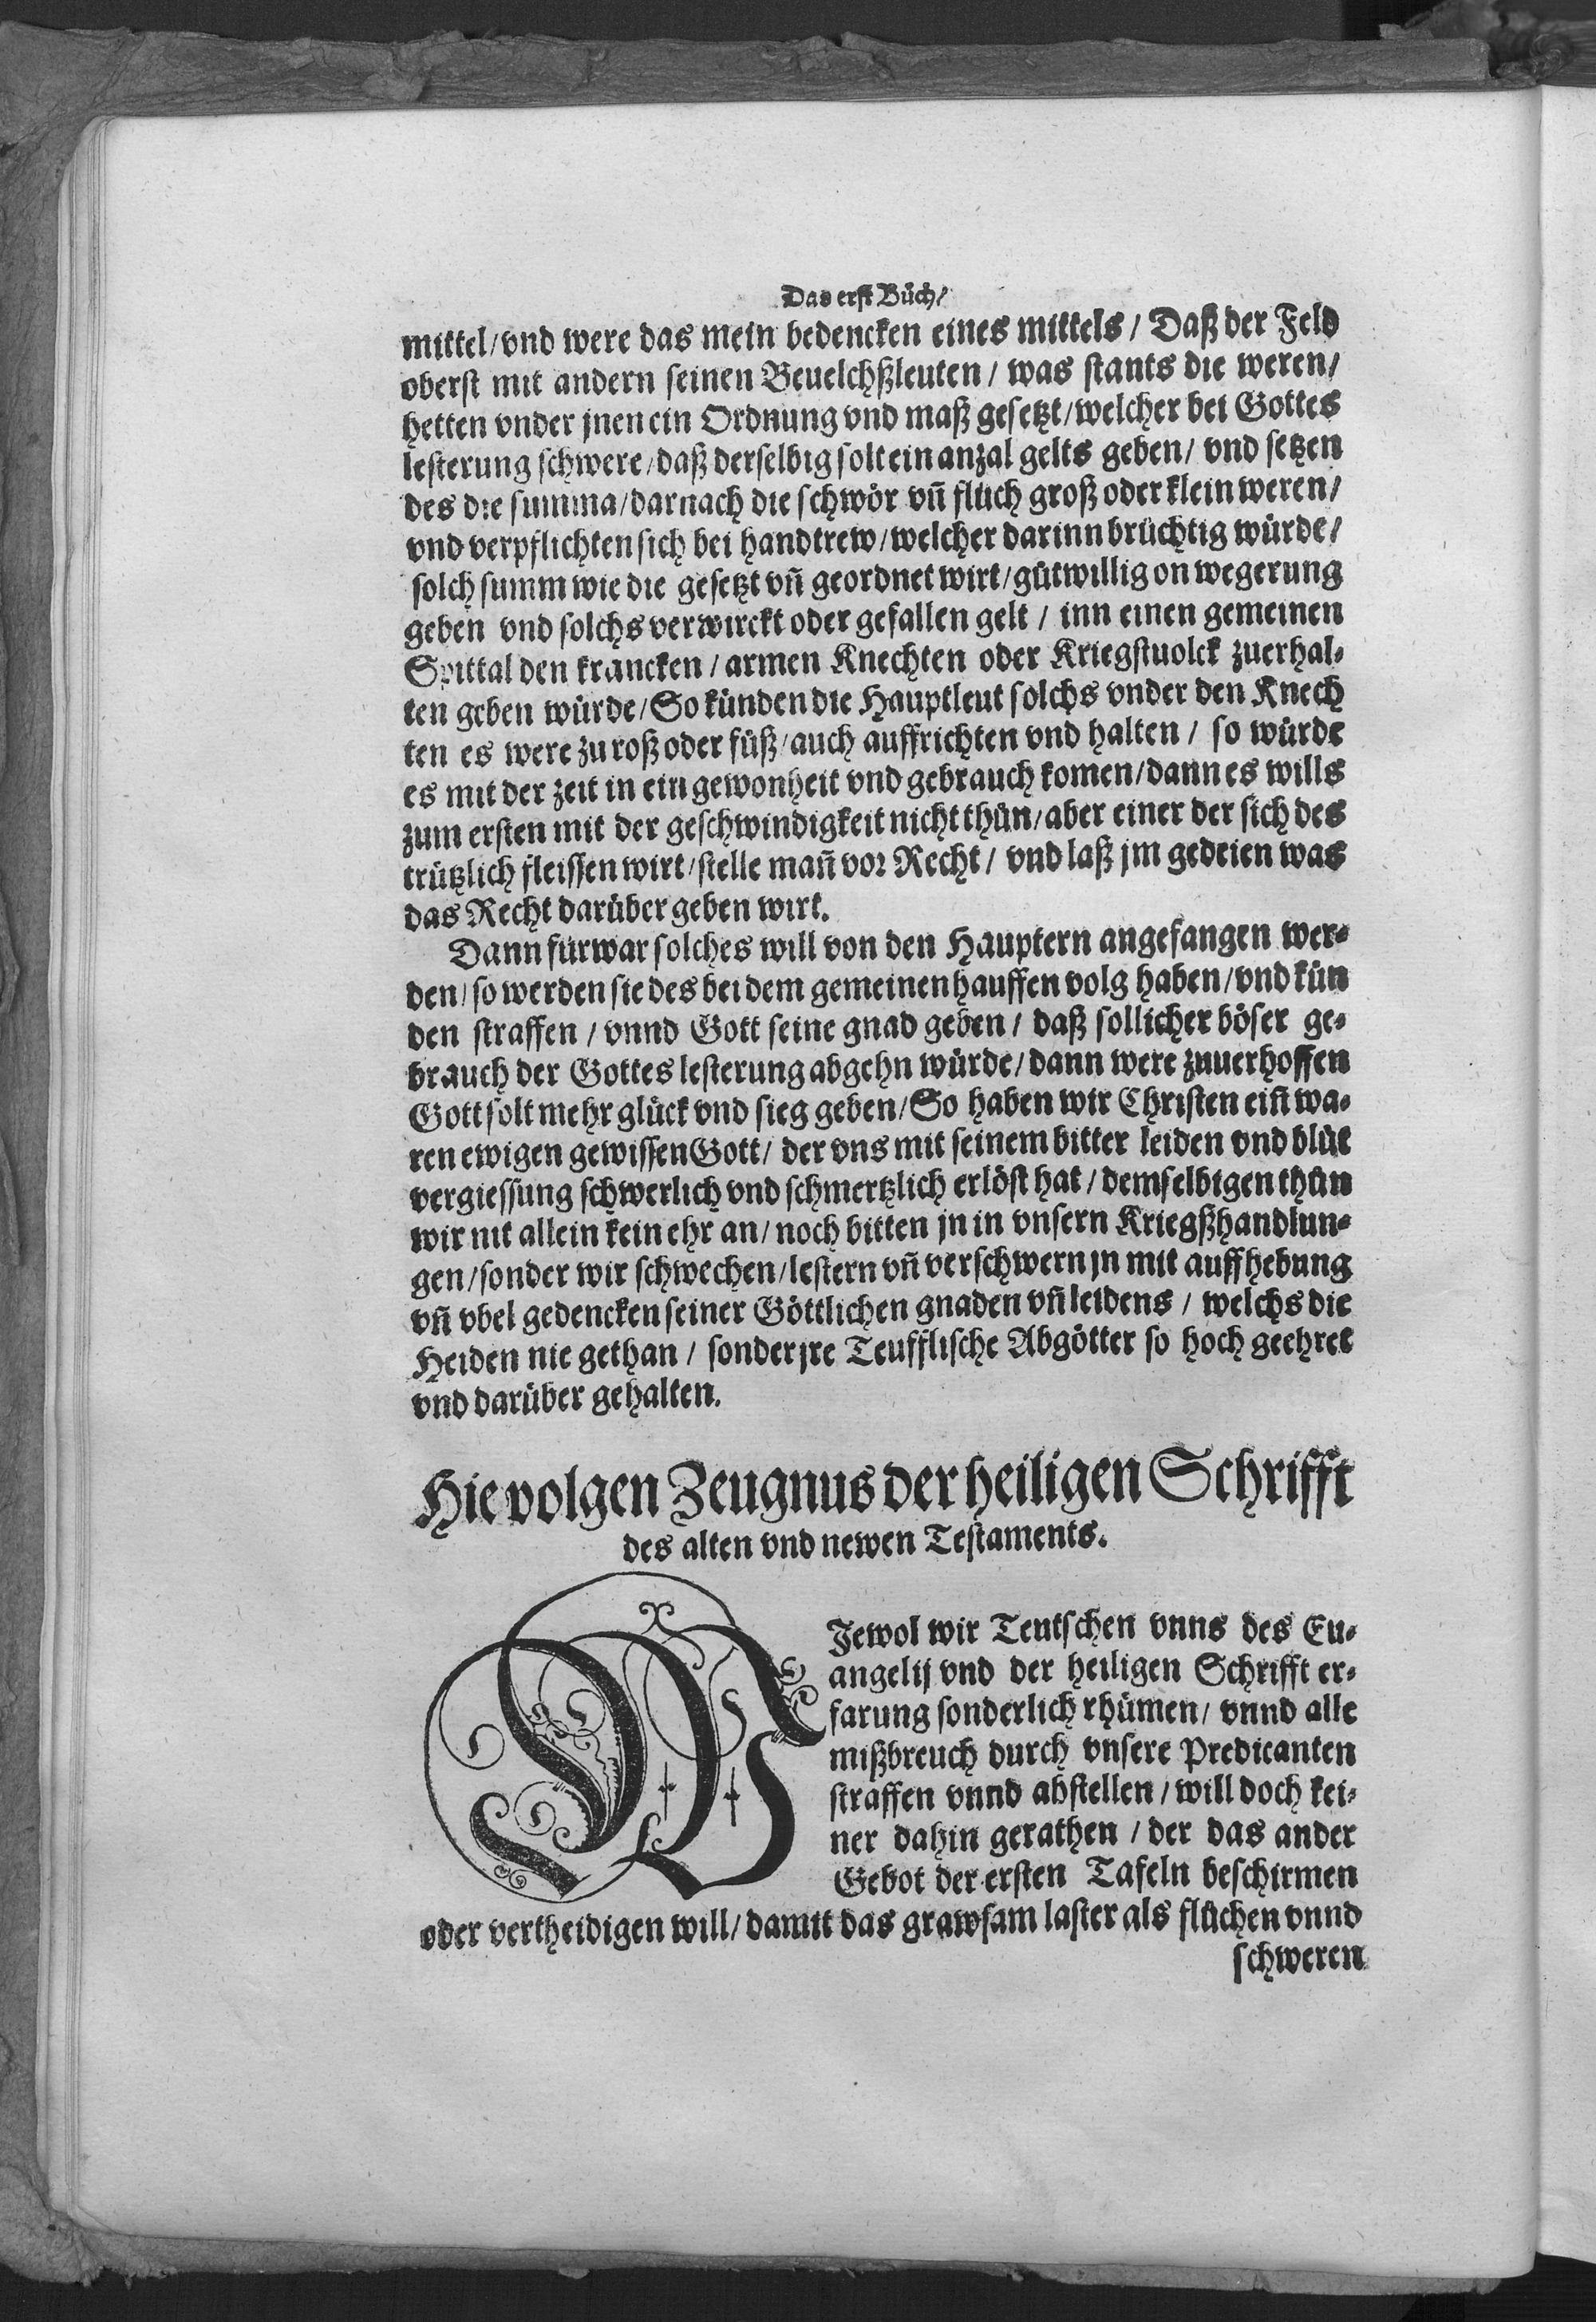 Das erst Bůch/
mittel/vnd were das mein bedencken eines mittels/ Daß der Feld
oberst mit andern seinen Beuelchßleuten/ was stants die weren/
hetten vnder jnen ein Ordnung vnd maß gesetzt/welcher bei Gottes
lesterung schwere/daß derselbig solt ein anzal gelts geben/ vnd setzen
des die summa/darnach die schwör vñ flůch groß oder klein weren/
vnd verpflichten sich bei handtrew/welcher darinn brüchtig würde/
solch summ wie die gesetzt vñ geordnet wirt/gůtwillig on wegerung
geben vnd solchs verwirckt oder gefallen gelt/ inn einen gemeinen
Spittal den krancken/armen Knechten oder Kriegstuolck zuerhal-
ten geben würde/So künden die Hauptleut solchs vnder den Knech
ten es were zu roß oder fůß/auch auffrichten vnd halten/ so würde
es mit der zeit in ein gewonheit vnd gebrauch komen/dann es wills
zum ersten mit der geschwindigkeit nicht thůn/aber einer der sich des
trützlich fleissen wirt/stelle mañ vor Recht/ vnd laß jm gedeien was
das Recht darüber geben wirt.
Dann fürwar solches will von den Hauptern angefangen wer-
den/so werden sie des bei dem gemeinen hauffen volg haben/vnd kün
den straffen/ vnnd Gott seine gnad geben/ daß sollicher böser ge-
brauch der Gottes lesterung abgehn würde/dann were zuuerhoffen
Gott solt mehr glück vnd sieg geben/So haben wir Christen eiñ wa-
ren ewigen gewissen Gott/ der vns mit seinem bitter leiden vnd blůt
vergiessung schwerlich vnd schmertzlich erlöst hat/demselbigen thůn
wir nit allein kein ehr an/noch bitten jn in vnsern Kriegßhandlun-
gen/sonder wir schwechen/lestern vñ verschwern jn mit auffhebung
vñ vbel gedencken seiner Göttlichen gnaden vñ leidens/ welchs die
Heiden nie gethan/ sonder jre Teufflische Abgötter so hoch geehret
vnd darüber gehalten.
Hie volgen Zeugnus der heiligen Schrifft
des alten vnd newen Testaments.
WIewol wir Teutschen vnns des Eu-
angelij vnd der heiligen Schrifft er-
farung sonderlich rhümen/ vnnd alle
mißbreuch durch vnsere Predicanten
straffen vnnd abstellen/will doch kei-
ner dahin gerathen/der das ander
Gebot der ersten Tafeln beschirmen
oder vertheidigen will/damit das grawsam laster als flůchen vnnd
schweren